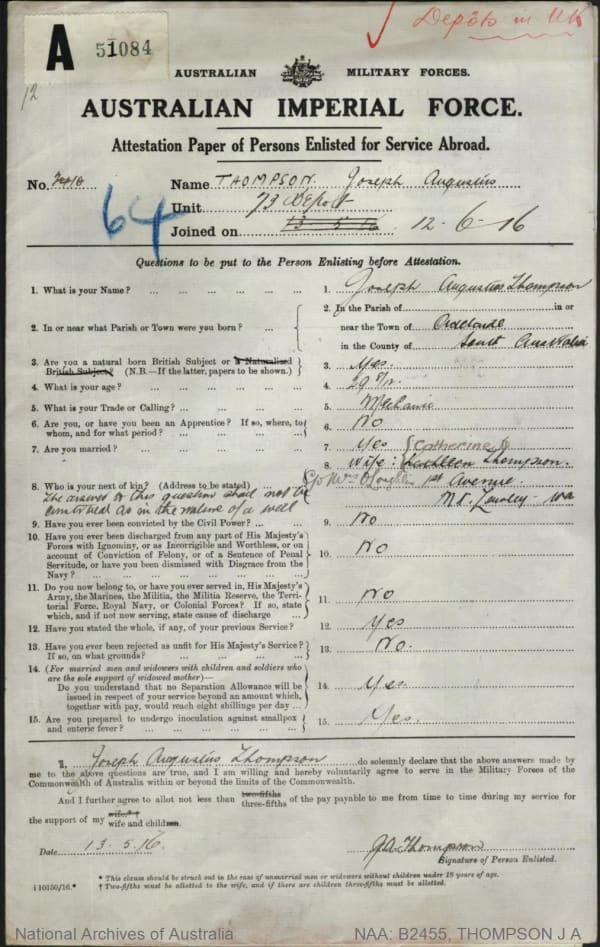 Depôts in UK
A 51084
12
AUSTRALIAN MILITARY FORCES.
AUSTRALIAN IMPERIAL FORCE.
Attestation Paper of Persons Enlisted for Service Abroad.
No. Name THOMPSON. Joseph Augustus
64
Unit 73 Depot
Joined on 13 5 16 12-6-16
Questions to be put to the Person Enlisting before Attestation.
1. What is your Name? ... 1. Joseph Augustus Thompson
2. In or near what Parish or Town were you born? ... 2. In the Parish of in or
near the Town of Adelaide
in the County of South Australia
3. Are you a natural born British Subject or a Naturalised
British Subject? (N.B.—If the latter, papers to be shown.) 3. Yes.
4. What is your age? ... 4. 29 7/12
5. What is your Trade or Calling? ... 5. Mechanic
6. Are you, or have you been an Apprentice? If so, where, to
whom, and for what period? ... 6. No
7. Are you married? ... 7. Yes (Catherine)
8. Who is your next of kin? (Address to be stated) ... 8. Wife: Kathleen Thompson.
C/o Mrs 1st Avenue.
Mt. Lawley - WA
The answer to this question shall not be
construed as in the nature of a will
9. Have you ever been convicted by the Civil Power? ... 9. No
10. Have you ever been discharged from any part of His Majesty's
Forces with Ignominy, or as Incorrigible and Worthless, or on
account of Conviction of Felony, or of a Sentence of Penal
Servitude, or have you been dismissed with Disgrace from the
Navy? ... 10. No
11. Do you now belong to, or have you ever served in, His Majesty's
Army, the Marines, the Militia, the Militia Reserve, the Terri-
torial Force, Royal Navy, or Colonial Forces? If so, state
which, and if not now serving, state cause of discharge ... 11. No
12. Have you stated the whole, if any, of your previous Service? 12. Yes
13. Have you ever been rejected as unfit for His Majesty's Service?
If so, on what grounds? ... 13. No.
14. (For married men and widowers with children and soldiers who
are the sole support of widowed mother)—
Do you understand that no Separation Allowance will be
issued in respect of your service beyond an amount which,
together with pay, would reach eight shillings per day ... 14. Yes.
15. Are you prepared to undergo inoculation against smallpox
and enteric fever? ... 15. Yes.
I, Joseph Augustus Thompson do solemnly declare that the above answers made by
me to the above questions are true, and I am willing and hereby voluntarily agree to serve in the Military Forces of the
Commonwealth of Australia within or beyond the limits of the Commonwealth.
And I further agree to allot not less than two-fifths
three-fifths of the pay payable to me from time to time during my service for
the support of my wife*†
wife and children.
Date 13.5.16. J.A. Thompson
Signature of Person Enlisted.
* This clause should be struck out in the case of unmarried men or widowers without children under 18 years of age.
i 10150/16.* † Two-fifths must be allotted to the wife, and if there are children three-fifths must be allotted.
National Archives of Australia NAA: B2455, THOMPSON J A